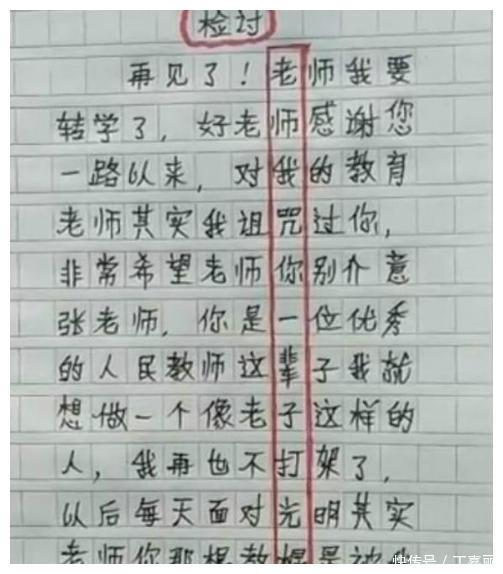 检讨
再见了！老师我要
转学了，好老师感谢您
一路以来，对我的教育
老师其实我诅咒过你，
非常希望老师你别介意
张老师，你是一位优秀
的人民教师这辈子我就
想做一个像老子这样的
人，我再也不打架了，
以后每天面对光明其实
老师你那根教棍是被
快传号／丁嘉丽